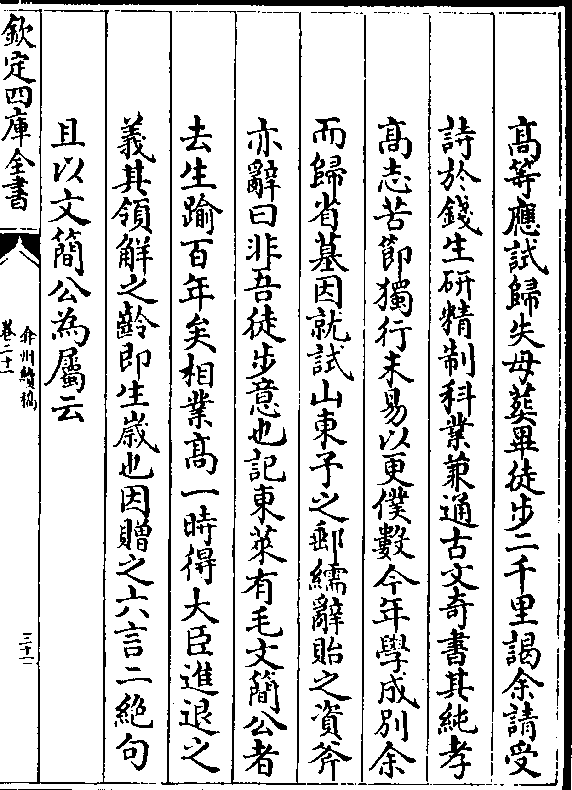 髙等應試歸失母葬畢徒步二千里謁余請受
詩於錢生研精制科業兼通古文奇書其純孝
髙志苦節獨行未易以更僕數今年學成別余
而歸省墓因就試山東予之郵繻辭貽之資斧
亦辭曰非吾徒步意也記東萊有毛文簡公者
去生踰百年矣相業髙一時得大臣進退之
義其領解之齡即生嵗也因贈之六言二絶句
且以文簡公為屬云
欽定四庫全書
弇州續稿
卷二十一
三十一